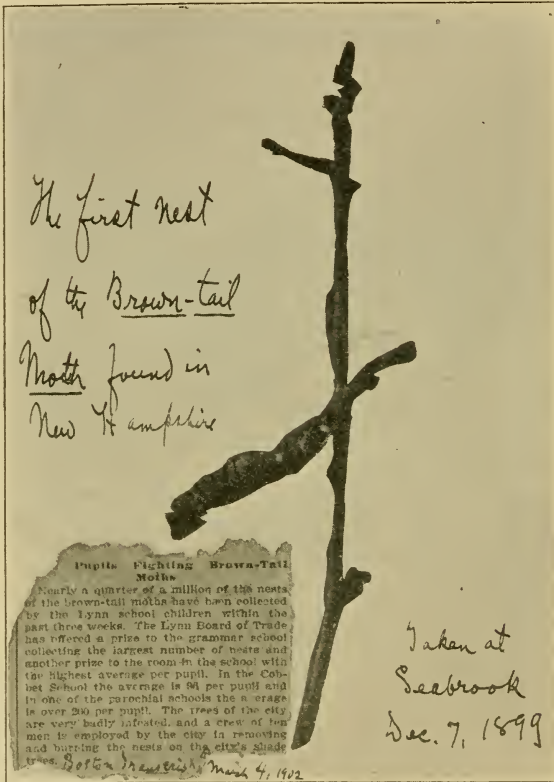 The first nest
of the Brown-tail
Moth found in
New Hampshire
Pupils Fighting Brown-Tail
Moths
Nearly a quarter of a million of the nests
of the brown-tail moths have been collected
by the Lynn school children within the
past three weeks. The Lynn Board of Trade
has offered a prize to the grammar school
collecting the largest number of nests and
another prize to the room in the school with
the highest average per pupil. In the Cob-
bet School the average is 96 per pupil and
in one of the parochial schools the average
is over 200 per pupil. The trees of the city
are very badly infested, and a crew of ten
men is employed by the city in removing
and burning the nests on the city's shade
trees. Boston Transcript, March 4, 1902
Taken at
Seabrook
Dec. 7, 1899